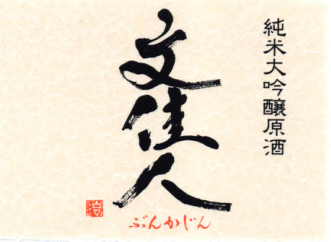 純米大吟醸原酒
文佳人
ぶんかじん